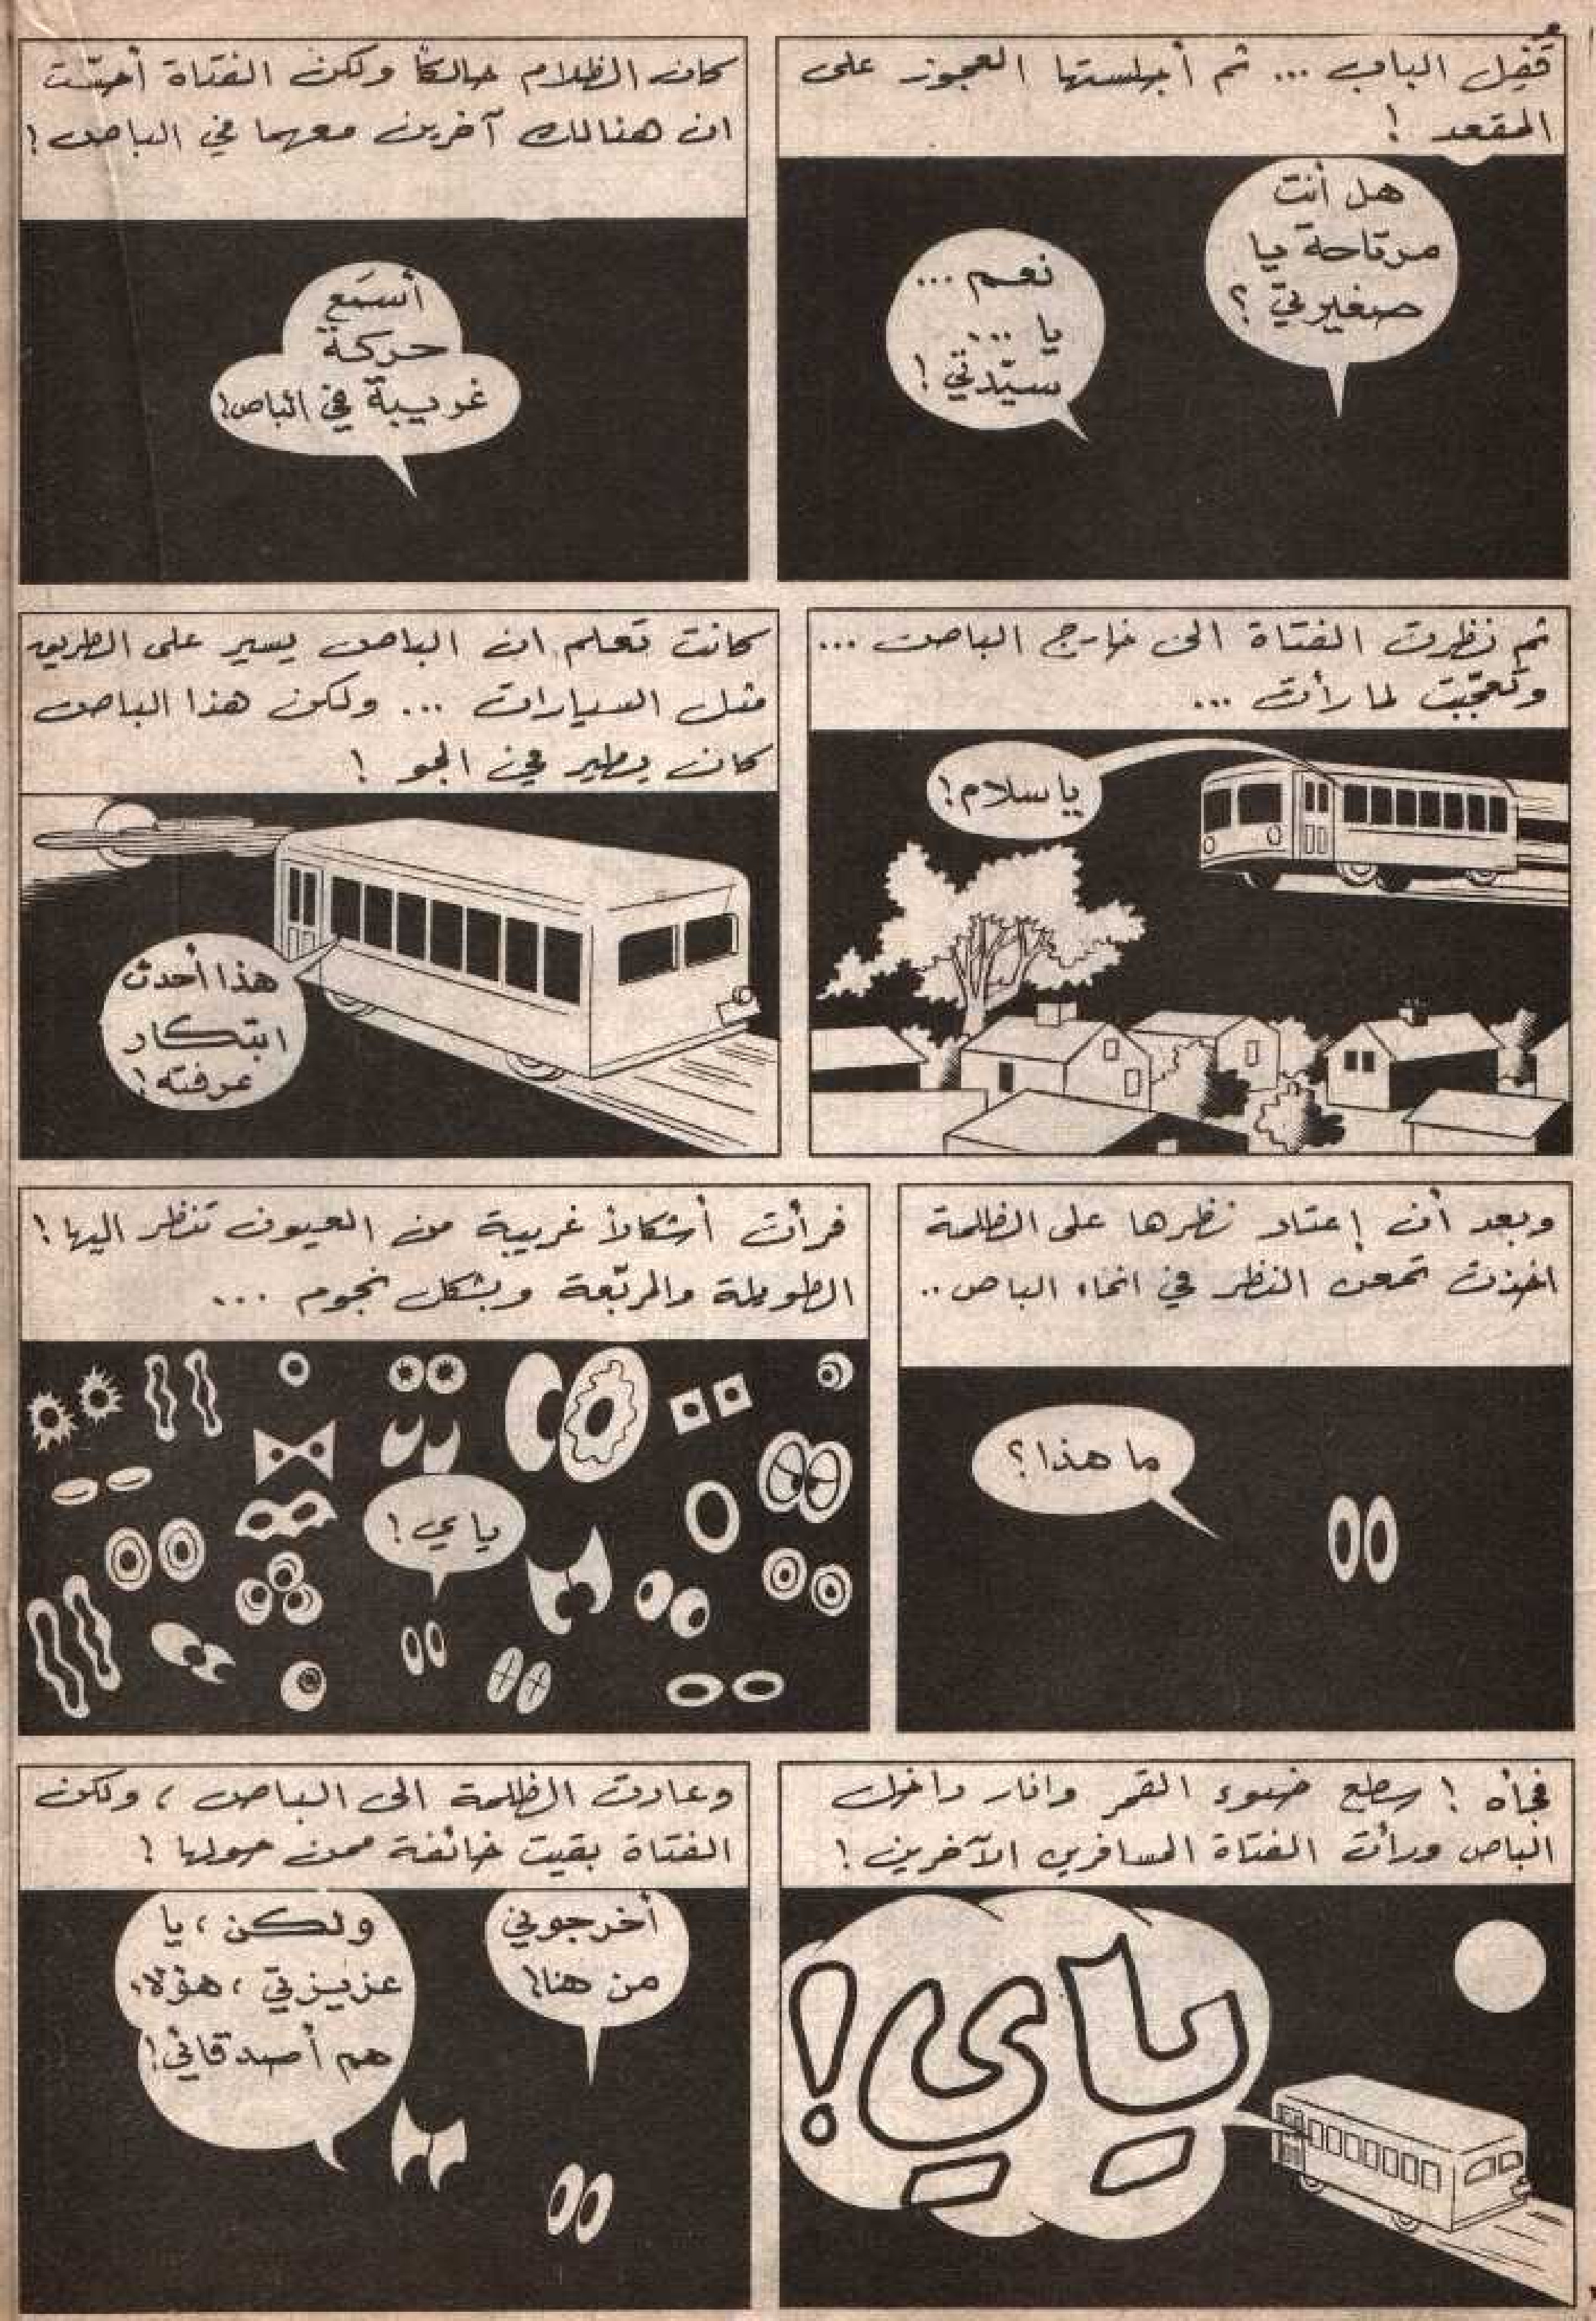 قُفِل الباب ... ثم أجلستها العجوز على
المقعد !
هل أنت
مرتاحة يا
صغيرتي ؟
نعم ...
يا ...
سيّدتي !
كان الظلام حالكاً ولكن الفتاة أحسّت
ان هنالك آخرين معهما في الباص !
أسمَع
حركة
غريبة في الباص!
ثم نظرت الفتاة الى خارج الباص ...
وتعجّبت لما رأت ...
يا سلام !
كانت تعلم ان الباص يسير على الطريق
مثل السيارات ... ولكن هذا الباص
كان يطير في الجو !
هذا أحدث
ابتكار
عرفته !
وبعد أن إعتاد نظرها على الظلمة
اخذت تمعن النظر في انحاء الباص ..
ما هذا ؟
فرأت أشكالاً غريبة من العيون تنظر اليها !
الطويلة والمربّعة وبشكل نجوم ...
ياي !
فجأه ! سطع ضوء القمر وانار داخل
الباص ورأت الفتاة المسافرين الآخرين !
ياي !
وعادت الظلمة الى الباص ، ولكن
الفتاة بقيت خائفة ممن حولها !
أخرجوني
من هنا!
ولكن ، يا
عزيزتي ، هؤلاء
هم أصدقائي !